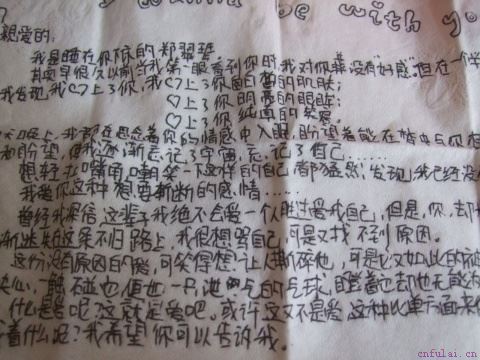 be with yo
親爱的:
我是睡在你
其实早很久以前当我第一眼看到你时,我对你並没有"好感"。但在一个学
我发现我♡上了你,我♡上了你面白晳的肌肤;
♡上了你的亮的眼眸;
♡上了你纯真的笑容。
晚上,我都在思念着你的情感中入眠,盼望着能在梦中与你相
和盼望,使我逐渐忘记了宇宙,忘记了自己……
想轻扯嘴角,嘲笑一下这样的自己都猛然发现,我已经没
我爱你这种想要斩断的感情……
曾经我深信,这辈子我绝不会爱一个人胜过爱我自己,但是,你,却
渐迷失自这条不归路上,我很想骂自己,可是又找不到原因。
这份没有原因的爱,可笑得想让人撕碎他,可是它又如此的
决心,触碰也便如一只泄的气球,瞪着它去却也无能为
什么是爱呢?这就是爱吧。或许这又不是爱,这种比单方面来
着什么呢?我希望你可以告诉我。
cnfulai.cn